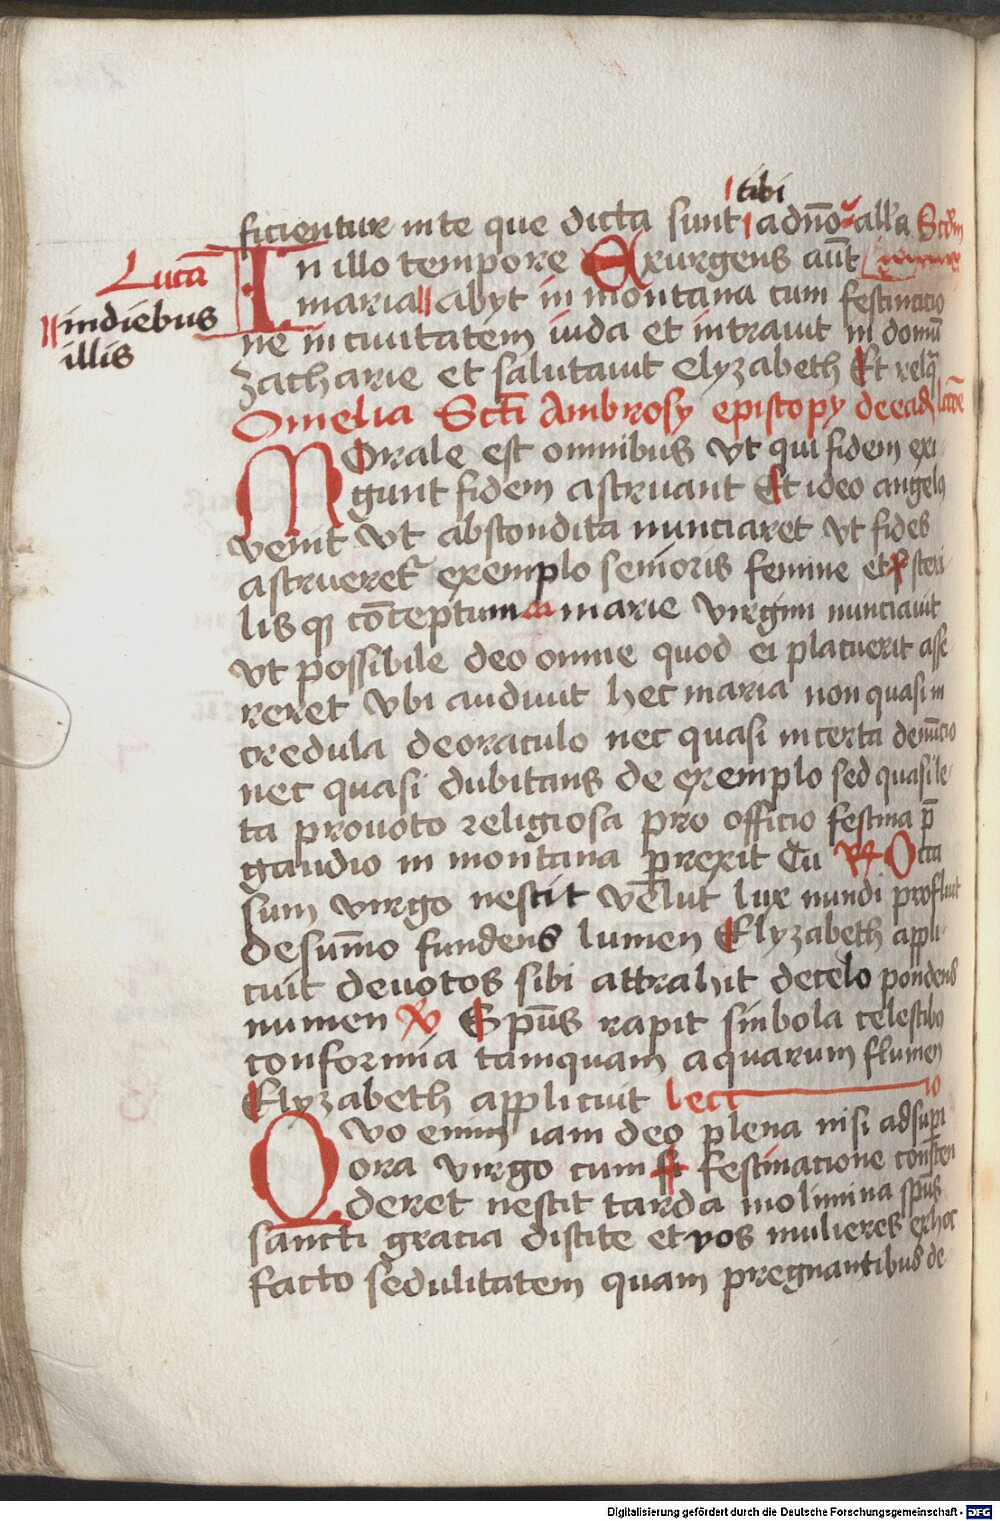 tibi
ficientur in te que dicta sunt adn̄o all'a Scd̄m
Lucā
In illo tempore Exurgens aūt
maria abyt in montana cum festinacio
indiebus
illis
ne in ciuitatem iuda et intrauit in domū
zacharie et salutauit elyzabeth Et relq̄
Omelia Scti Ambrosy episcopy de ead lcc̄oe
MOrale est omnibus vt qui fidem exi
gunt fidem astruant Et ideo angelus
venit vt abscondita nunciaret vt fides
astrueret exemplo senioris femine et steri
lisq; cōceptum marie virgini nunciauit
vt possibile deo omne quod ei placuerit asse
reret Vbi audiuit hec maria non quasi in
credula de oraculo nec quasi incerta de nūcio
nec quasi dubitans de exemplo sed quasi le
ta pro uoto religiosa pro officio festina p̄
gaudio in montana perrexit Cū R Occa
sum virgo nescit velut lux mundi profluit
de sum̄o fundens lumen Elyzabeth appli
cuit deuotos sibi attrahit de celo pondens
numen V Sp̄us rapit sinbola celestibꝫ
conformia tamquam aquarum flumen
Elyzabeth applicuit lectio
QVo enim iam deo plena nisi ad supi
ora virgo cum festinacione conscen
deret nescit tarda molimina sp̄us
sancti gracia discite et vos mulieres ex hoc
facto sedulitatem quam pregnantibus de